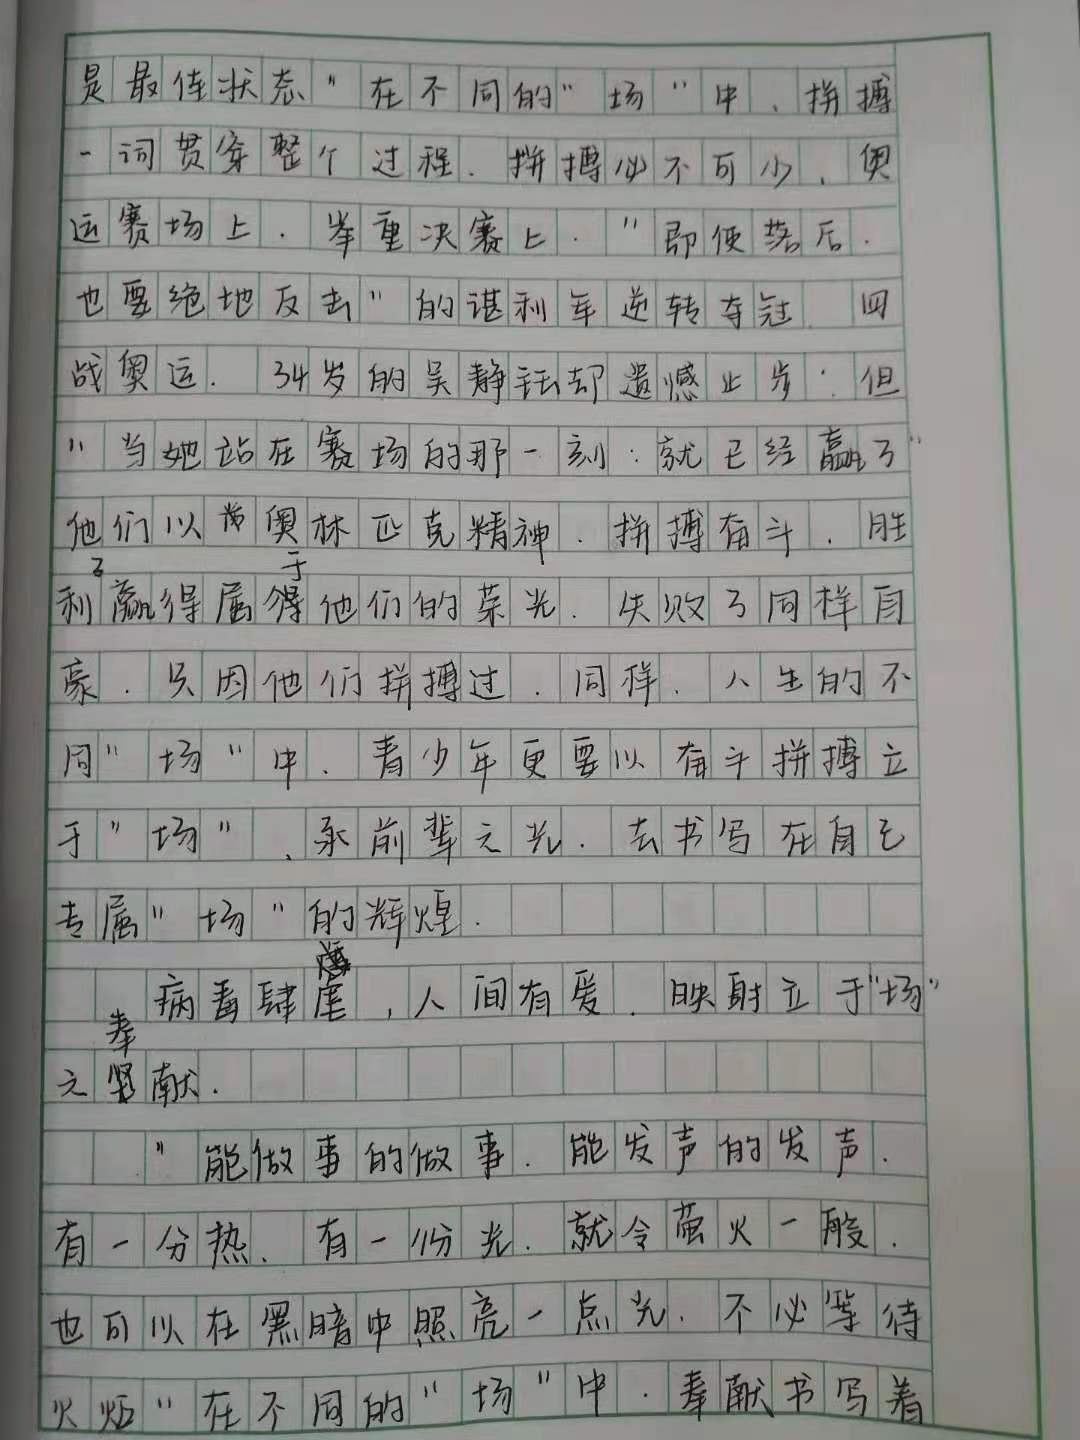 是最佳状态"在不同的"场"中，拼搏
一词贯穿整个过程．拼搏必不可少，奥
运赛场上．举重决赛上．"即便落后．
也要绝地反击"的谌利军逆转夺冠．四
战奥运．34岁的吴静钰却遗憾止步．但
"当她站在赛场的那一刻：就已经赢了"
他们以奥林匹克精神．拼搏奋斗．胜
利了赢得属于他们的荣光．失败了同样自
豪．只因他们拼搏过．同样．人生的不
同"场"中．青少年更要以奋斗拼搏立
于"场"、承前辈之光．去书写在自己
专属"场"的辉煌．
病毒肆虐，人间有爱．映射立于"场"
之奉献．
"能做事的做事．能发声的发声．
有一分热．有一份光．就令萤火一般．
也可以在黑暗中照亮一点光．不必等待
火炬"在不同的"场"中．奉献书写着